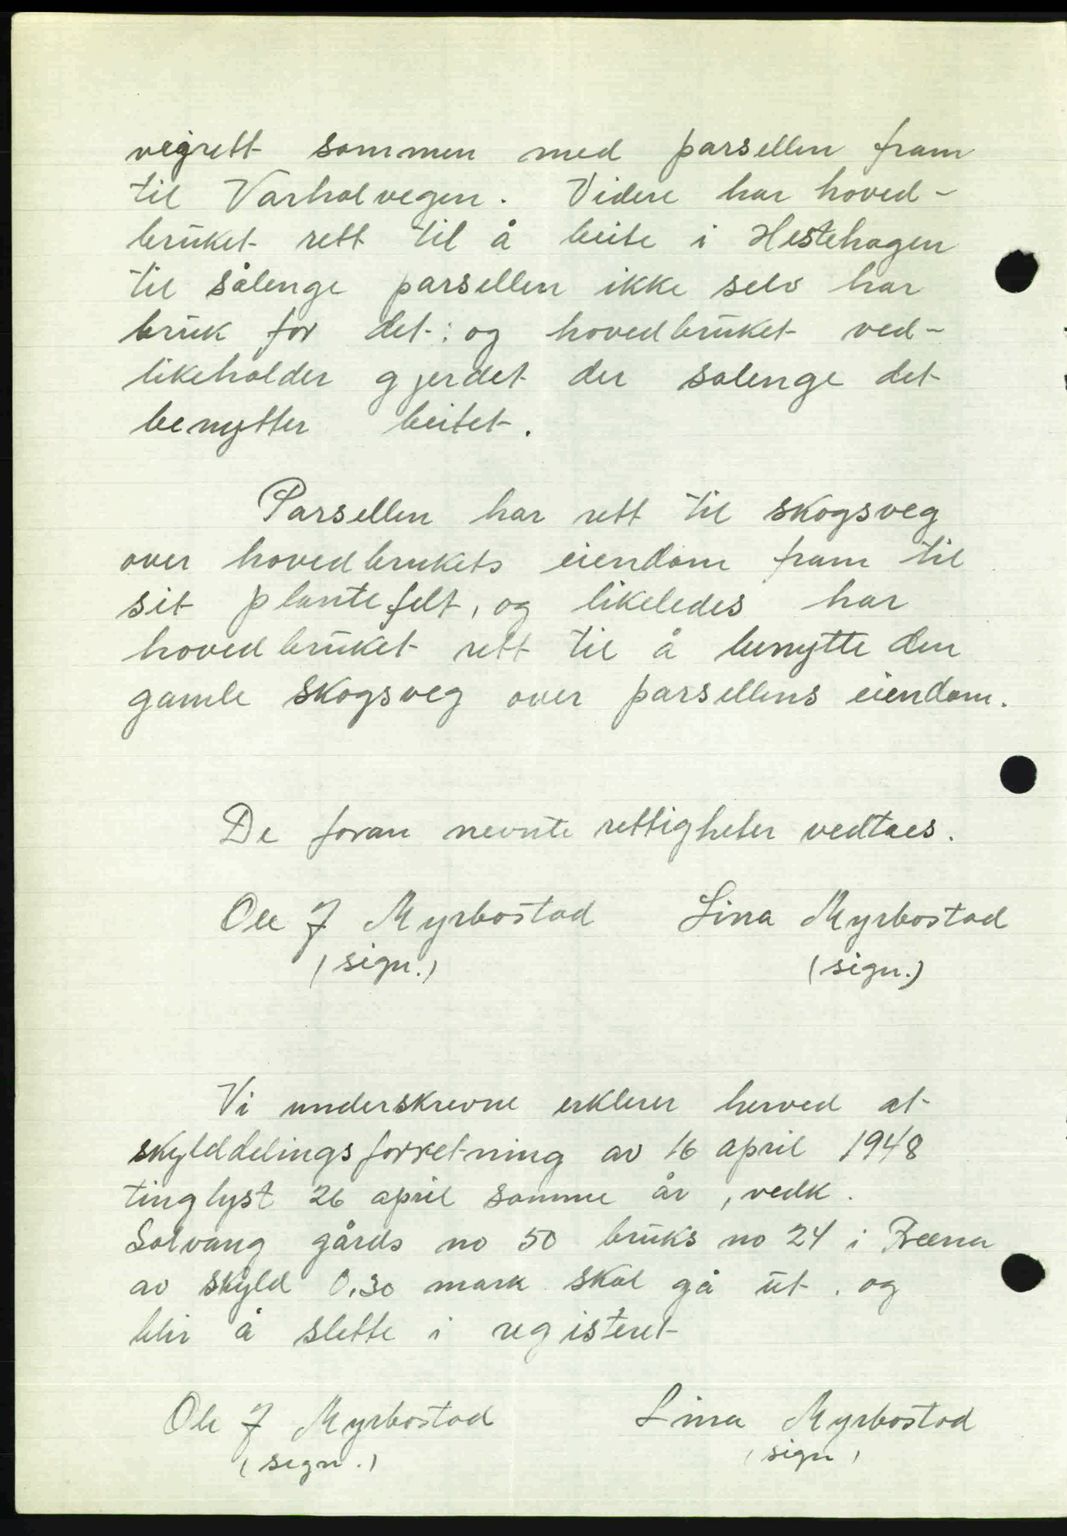 vegrett sammen med parsellen fram
til Varholvegen. Videre har hoved-
bruket rett til å beite i Hestehagen
til sålenge parsellen ikke selv har
bruk for det; og hovedbruket ved-
likeholder gjerdet der salenge det
benytter beitet.
Parsellen har rett til skogsveg
over hovedbrukets eiendom fram til
sit plantefelt, og likeledes har
hovedbruket rett til å benytte den
gamle skogsveg over parsellens eiendom.
De foran nevnte rettigheter vedtaes.
Ole J Myrbostad Lina Myrbostad
(sign.) (sign.)
Vi underskrevne erklerer herved at
skylddelingsforretning av 16 april 1948
tinglyst 26 april samme år, vedk.
Solvang gårds no 50 bruks no 24 i Fræna
av skyld 0,30 mark skal gå ut. og
blir å slette i registeret
Ole J Myrbostad Lina Myrbostad
(sign.) (sign)